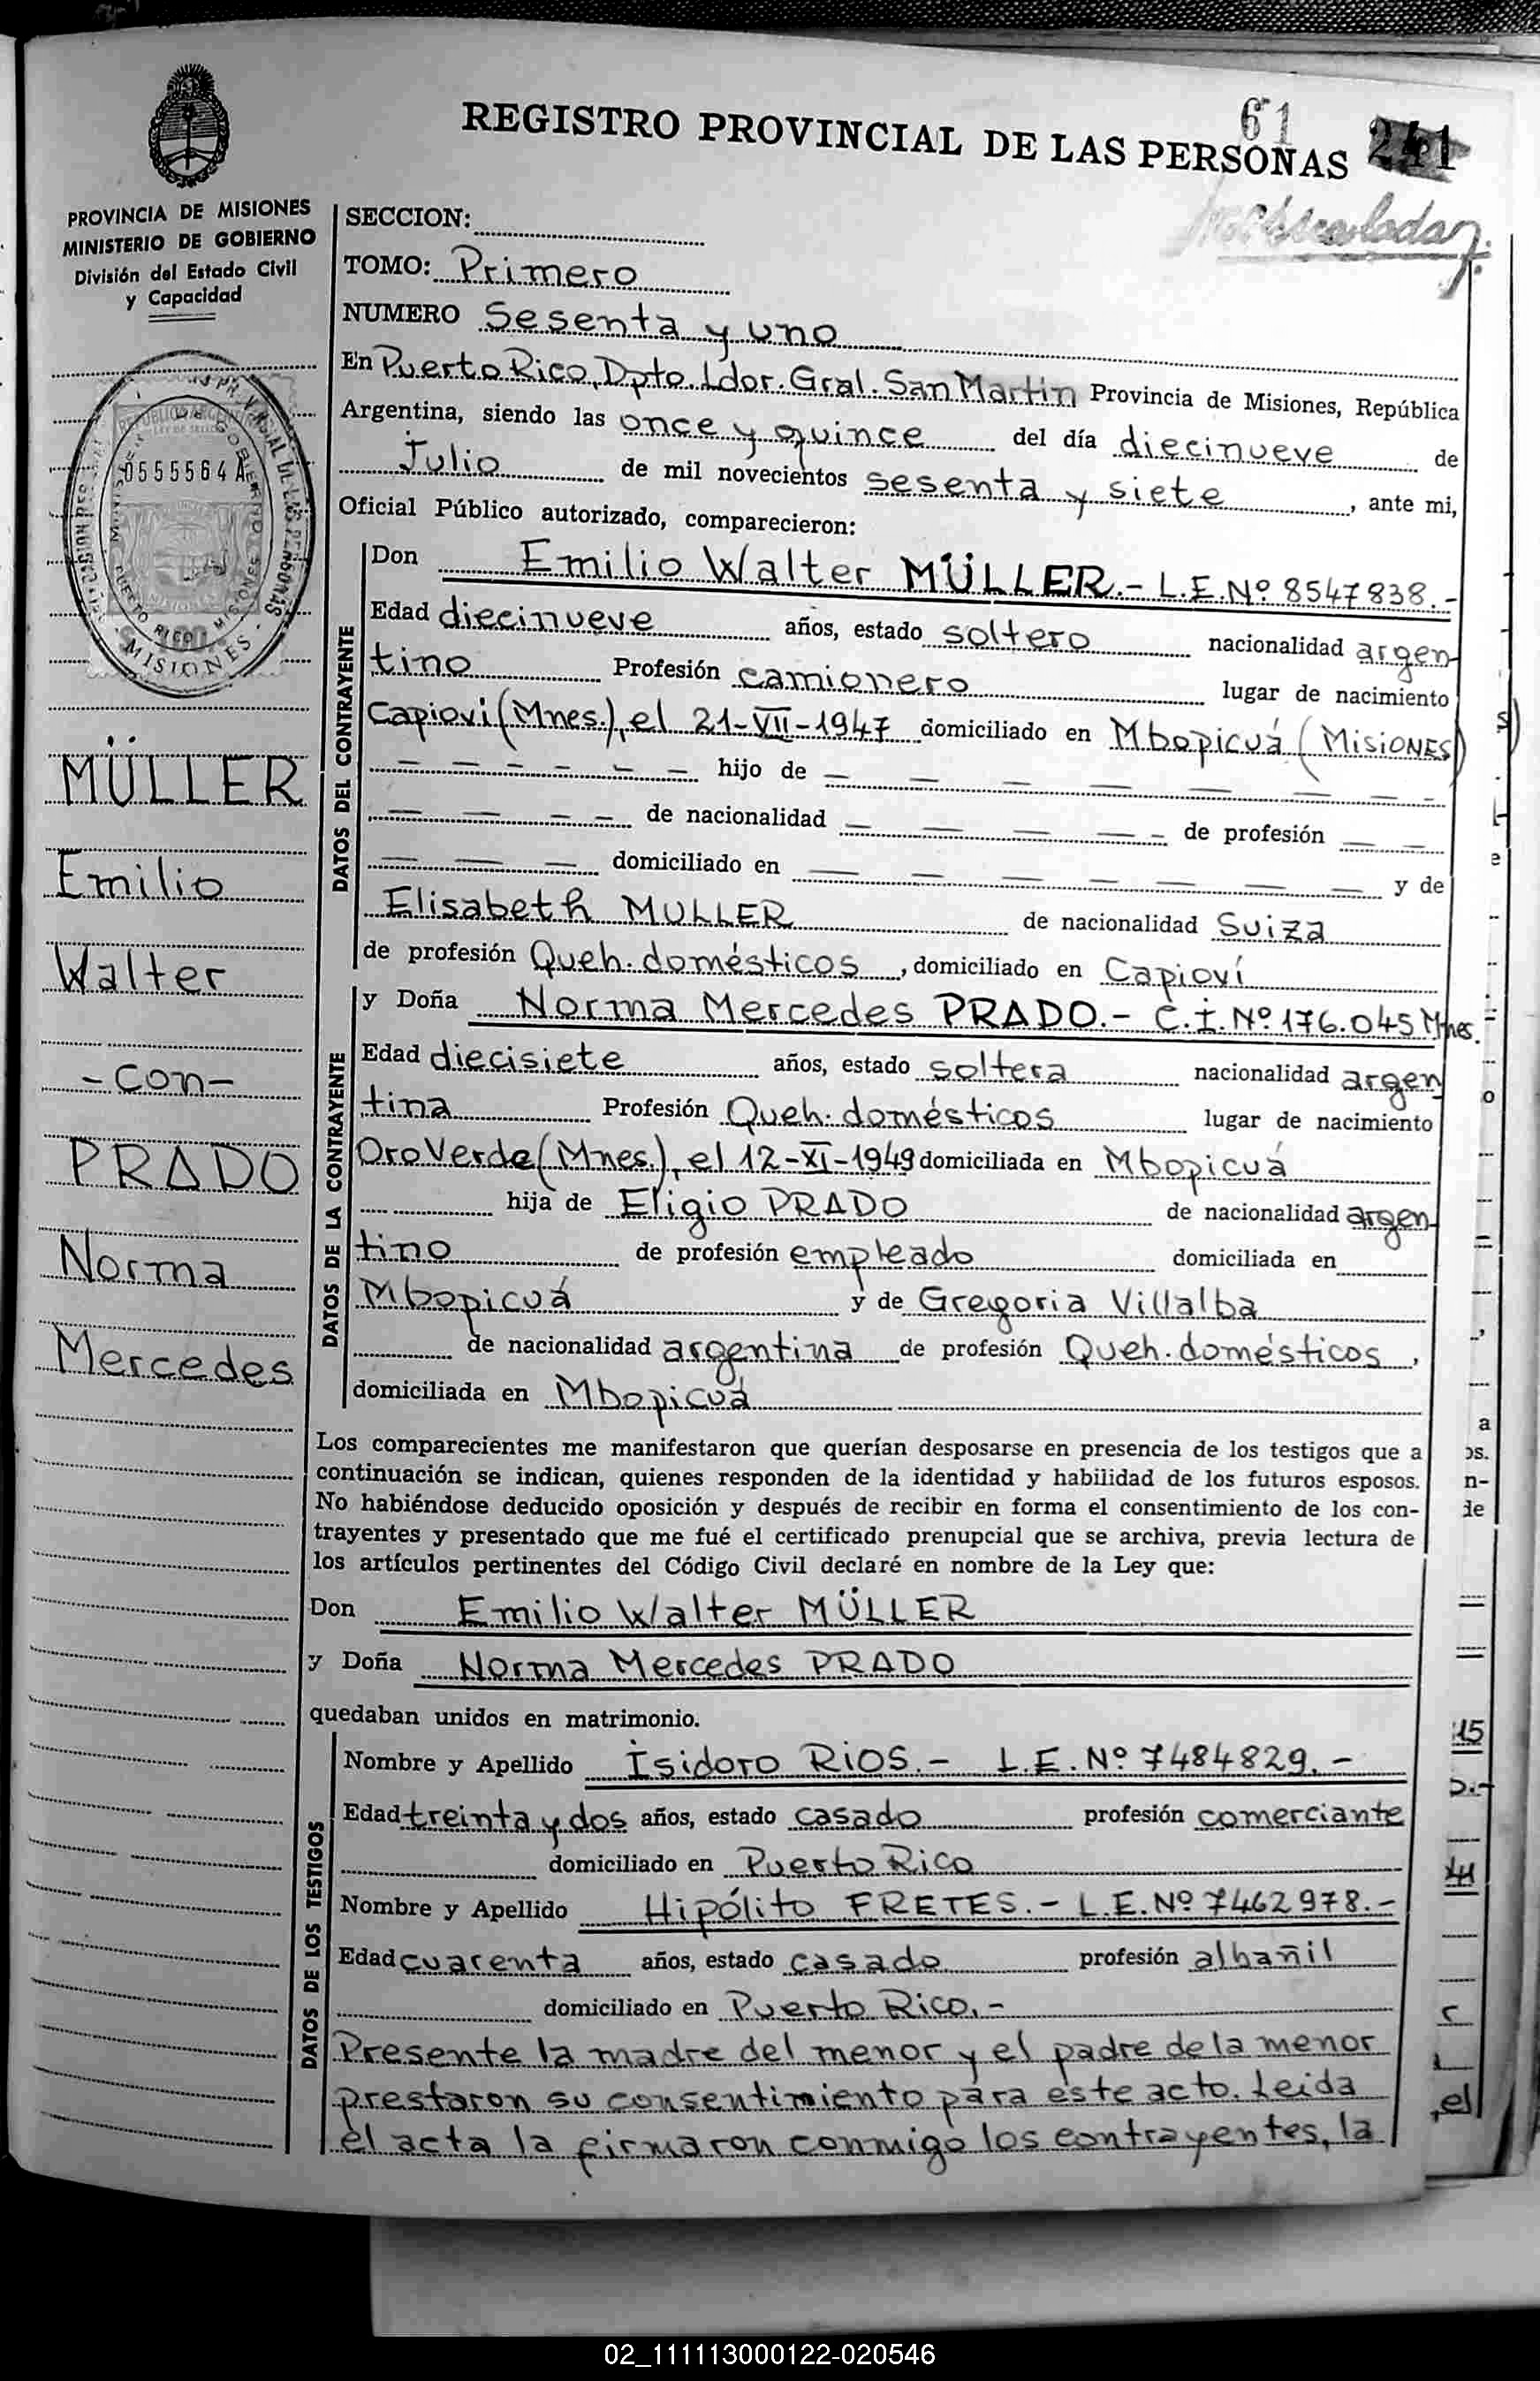 REGISTRO PROVINCIAL DE LAS PERSONAS
61
241
PROVINCIA DE MISIONES
MINISTERIO DE GOBIERNO
División del Estado Civil
y Capacidad
0555564 A
MÜLLER
Emilio
Walter
- con -
PRADO
Norma
Mercedes
SECCION:
TOMO: Primero
NUMERO Sesenta y uno
En Puerto Rico, Dpto. Ldor. Gral. San Martin Provincia de Misiones, República
Argentina, siendo las once y quince del día diecinueve de
Julio de mil novecientos sesenta y siete, ante mi,
Oficial Público autorizado, comparecieron:
DATOS DEL CONTRAYENTE
Don Emilio Walter MÜLLER.- L.E.Nº 8547838.-
Edad diecinueve años, estado soltero nacionalidad argen-
tino Profesión camionero lugar de nacimiento
Capioví (Mnes.), el 21-VII-1947 domiciliado en Mbopicuá (MISIONES)
— — — — — — hijo de — — — — — — —
— — — — de nacionalidad — — — — — de profesión — — —
— — — domiciliado en — — — — — — — y de
Elisabeth MULLER de nacionalidad Suiza
de profesión Queh. domésticos, domiciliado en Capioví
DATOS DE LA CONTRAYENTE
y Doña Norma Mercedes PRADO.- C.I.Nº 176.045 Mnes.
Edad diecisiete años, estado soltera nacionalidad argen
tina Profesión Queh. domésticos lugar de nacimiento
Oro Verde (Mnes.), el 12-XI-1949 domiciliada en Mbopicuá
hija de Eligio PRADO de nacionalidad argen-
tino de profesión empleado domiciliada en
Mbopicuá y de Gregoria Villalba
de nacionalidad argentina de profesión Queh. domésticos,
domiciliada en Mbopicuá
Los comparecientes me manifestaron que querían desposarse en presencia de los testigos que a
continuación se indican, quienes responden de la identidad y habilidad de los futuros esposos.
No habiéndose deducido oposición y después de recibir en forma el consentimiento de los con-
trayentes y presentado que me fué el certificado prenupcial que se archiva, previa lectura de
los artículos pertinentes del Código Civil declaré en nombre de la Ley que:
Don Emilio Walter MÜLLER
y Doña Norma Mercedes PRADO
quedaban unidos en matrimonio.
DATOS DE LOS TESTIGOS
Nombre y Apellido Isidoro RIOS.- L.E.Nº 7484829.-
Edad treinta y dos años, estado casado profesión comerciante
domiciliado en Puerto Rico
Nombre y Apellido Hipólito FRETES.- L.E.Nº 7462978.-
Edad cuarenta años, estado casado profesión albañil
domiciliado en Puerto Rico.-
Presente la madre del menor y el padre de la menor
prestaron su consentimiento para este acto. Leida
el acta la firmaron conmigo los contrayentes, la
02_111113000122-020546